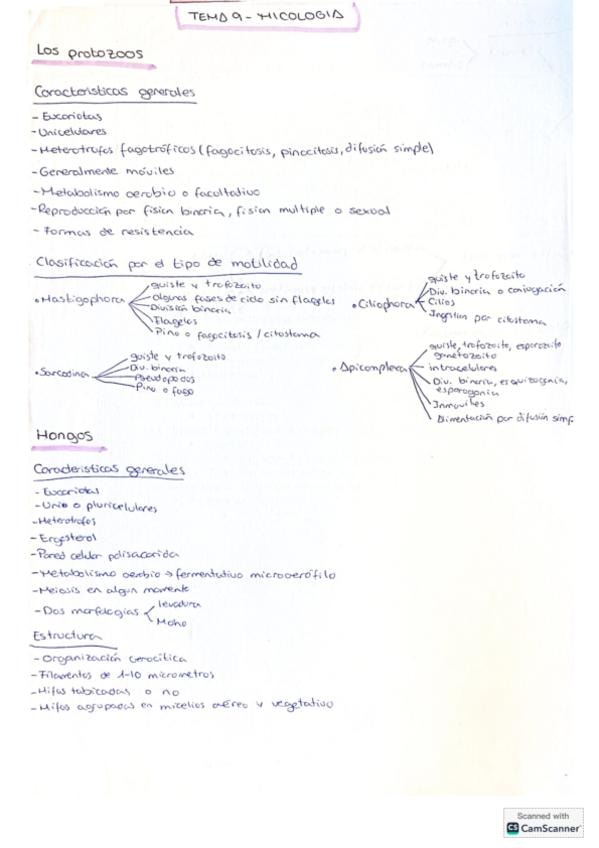 TEMA 9 - MICOLOGIA
Los protozoos
Características generales
- Eucariotas
- Unicelulares
- Heterotrofos fagotróficos (fagocitosis, pinocitosis, difusión simple)
- Generalmente móviles
- Metabolismo aerobio o facultativo
- Reproducción por fision binaria, fision multiple o sexual
- Formas de resistencia
Clasificación por el tipo de motilidad
• Mastigophora
quiste y trofozoito
algunas fases de ciclo sin flagelos
División binaria
Flagelos
Pino o fagocitosis / citostoma
• Ciliophora
quiste y trofozoito
Div. binaria o conjugación
Cilios
Ingestion por citostoma
• Sarcodina
quiste y trofozoito
Div. binaria
Pseudopodos
Pino o fago
• Apicomplexa
quiste, trofozoito, esporozoito
gametozoito
intracelulares
Div. binaria, esquizogonia,
esporogonia
Inmoviles
Alimentación por difusión simp.
Hongos
Características generales
- Eucariotas
- Unio o pluricelulares
- Heterotrofos
- Ergosterol
- Pared celular polisacarida
- Metabolismo aerobio → fermentativo microaerófilo
- Meiosis en algun momento
- Dos morfologias
levadura
Moho
Estructura
- Organización cenocitica
- Filamentos de 1-10 micrometros
- Hifas tabicadas o no
- Hifas agrupadas en micelios aéreo y vegetativo
Scanned with
CS CamScanner